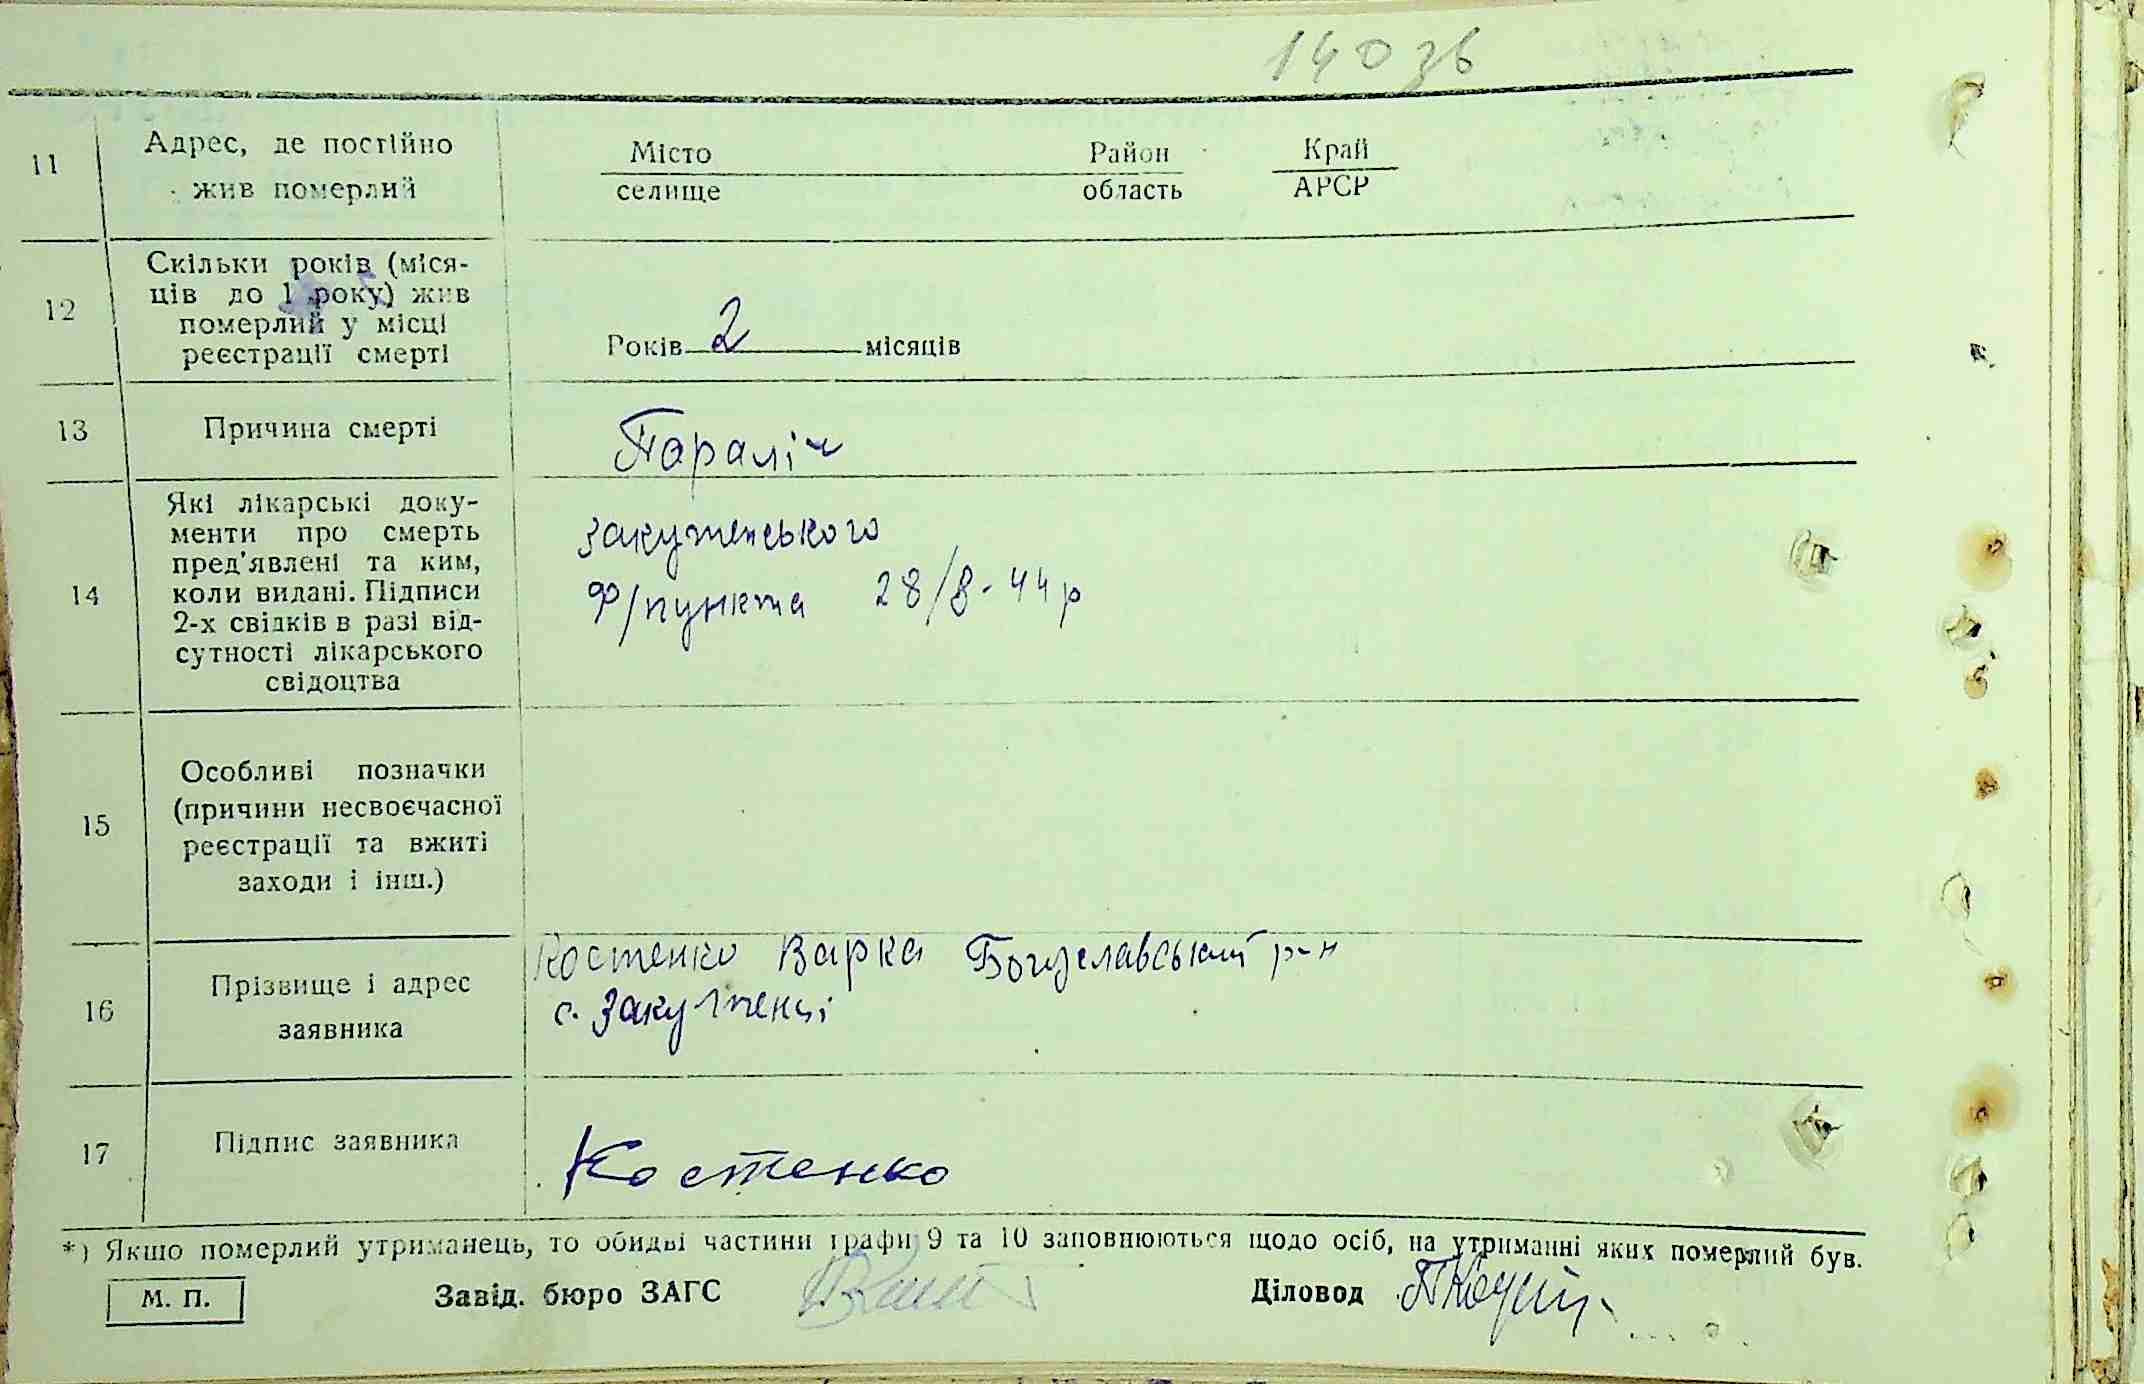 140 зв
11 Адрес, де постійно жив померлий
Місто Район Край
селище область АРСР
12 Скільки років (міся-
ців до 1 року) жив
померлий у місці
реєстрації смерті
Років 2 місяців
13 Причина смерті Параліч
14 Які лікарські доку-
менти про смерть
пред'явлені та ким,
коли видані. Підписи
2-х свідків в разі від-
сутності лікарського
свідоцтва
Закутенського
Ф/пункта 28/8-44р
15 Особливі позначки
(причини несвоєчасної
реєстрації та вжиті
заходи і інш.)
16 Прізвище і адрес
заявника
Костенко Варка Богуславський р-н
с. Закутенці
17 Підпис заявника Костенко
*) Якщо померлий утриманець, то обидві частини графи 9 та 10 заповнюються щодо осіб, на утриманні яких померлий був.
М. П. Завід. бюро ЗАГС Діловод